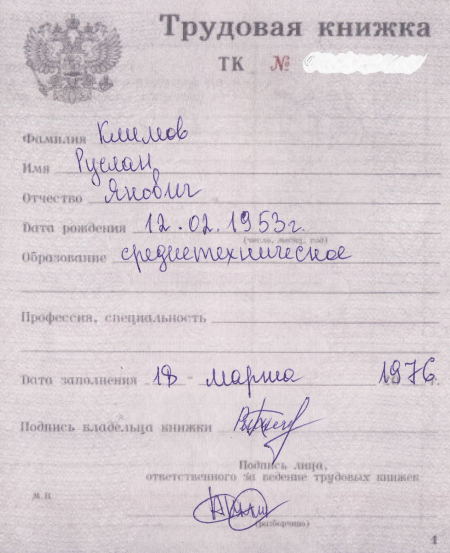 Трудовая книжка
ТК №
Фамилия Климов
Имя Руслан
Отчество Янович
Дата рождения 12.02.1953г.
(число, месяц, год)
Образование среднетехническое
Профессия, специальность
Дата заполнения 18 марта 1976
Подпись владельца книжки
Подпись лица,
ответственного за ведение трудовых книжек
М.П.
(разборчиво)
1